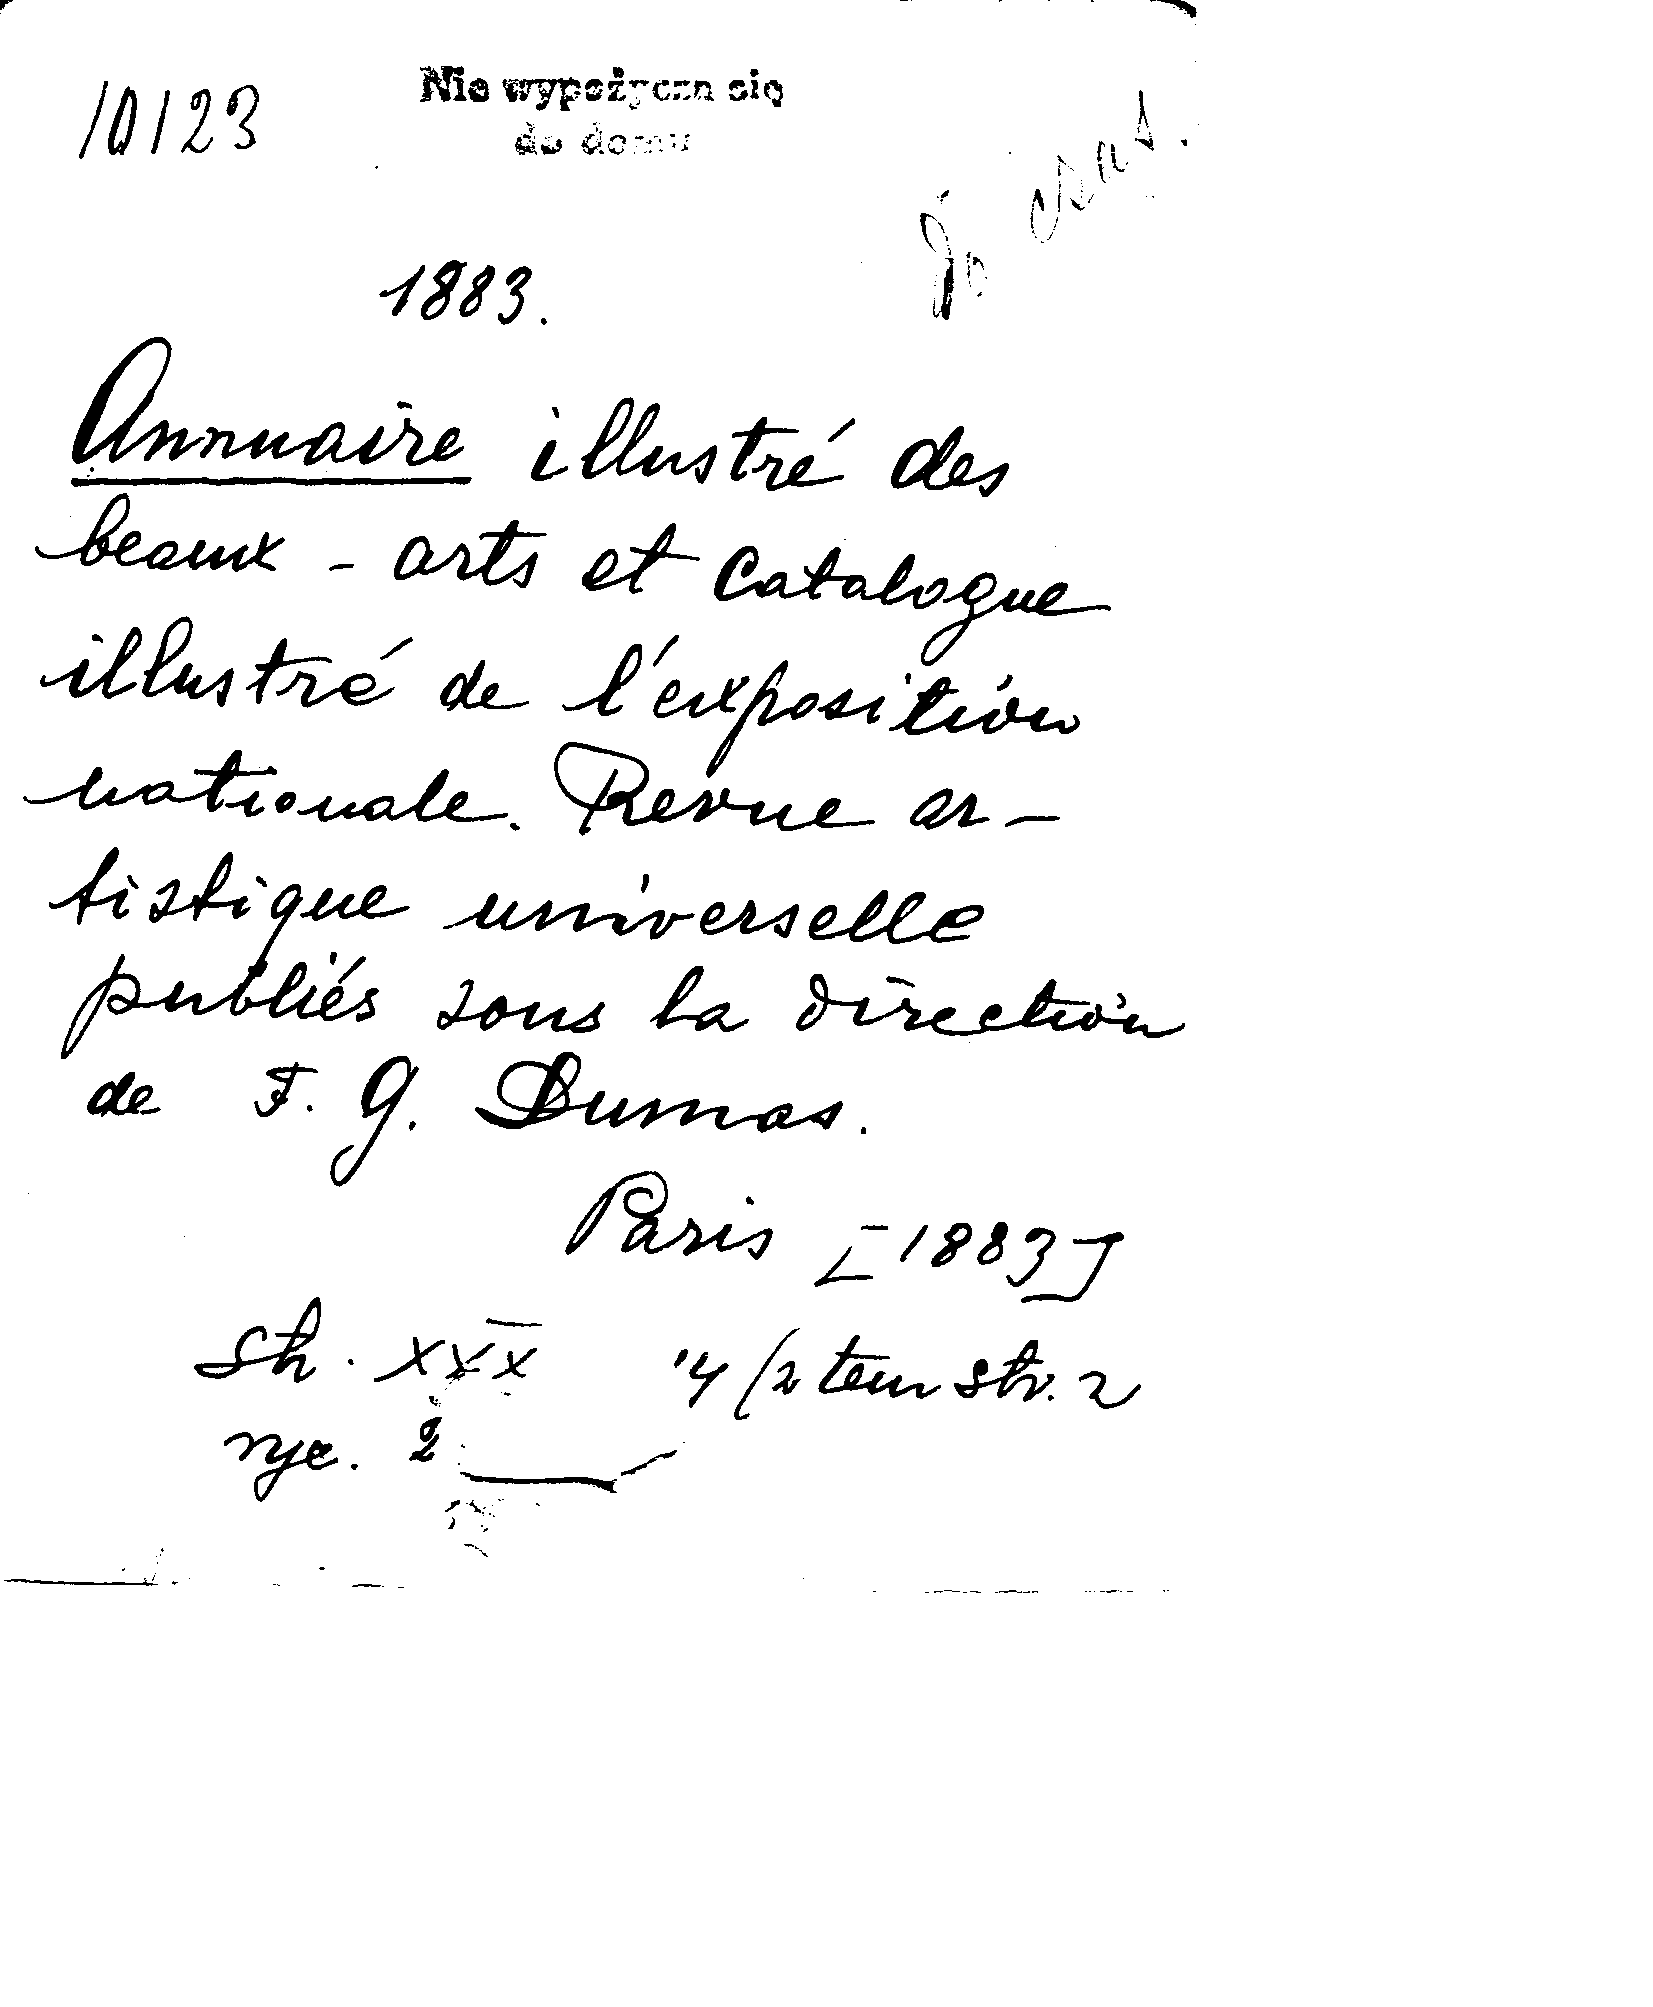 10123
Nie wypożycza się
do domu
do czas.
1883.
Annuaire illustré des
beaux - arts et catalogue
illustré de l'exposition
nationale. Revue ar-
tistique universelle
publiés sous la direction
de F. G. Dumas.
Paris [1883]
str. XXX
ryc. 2